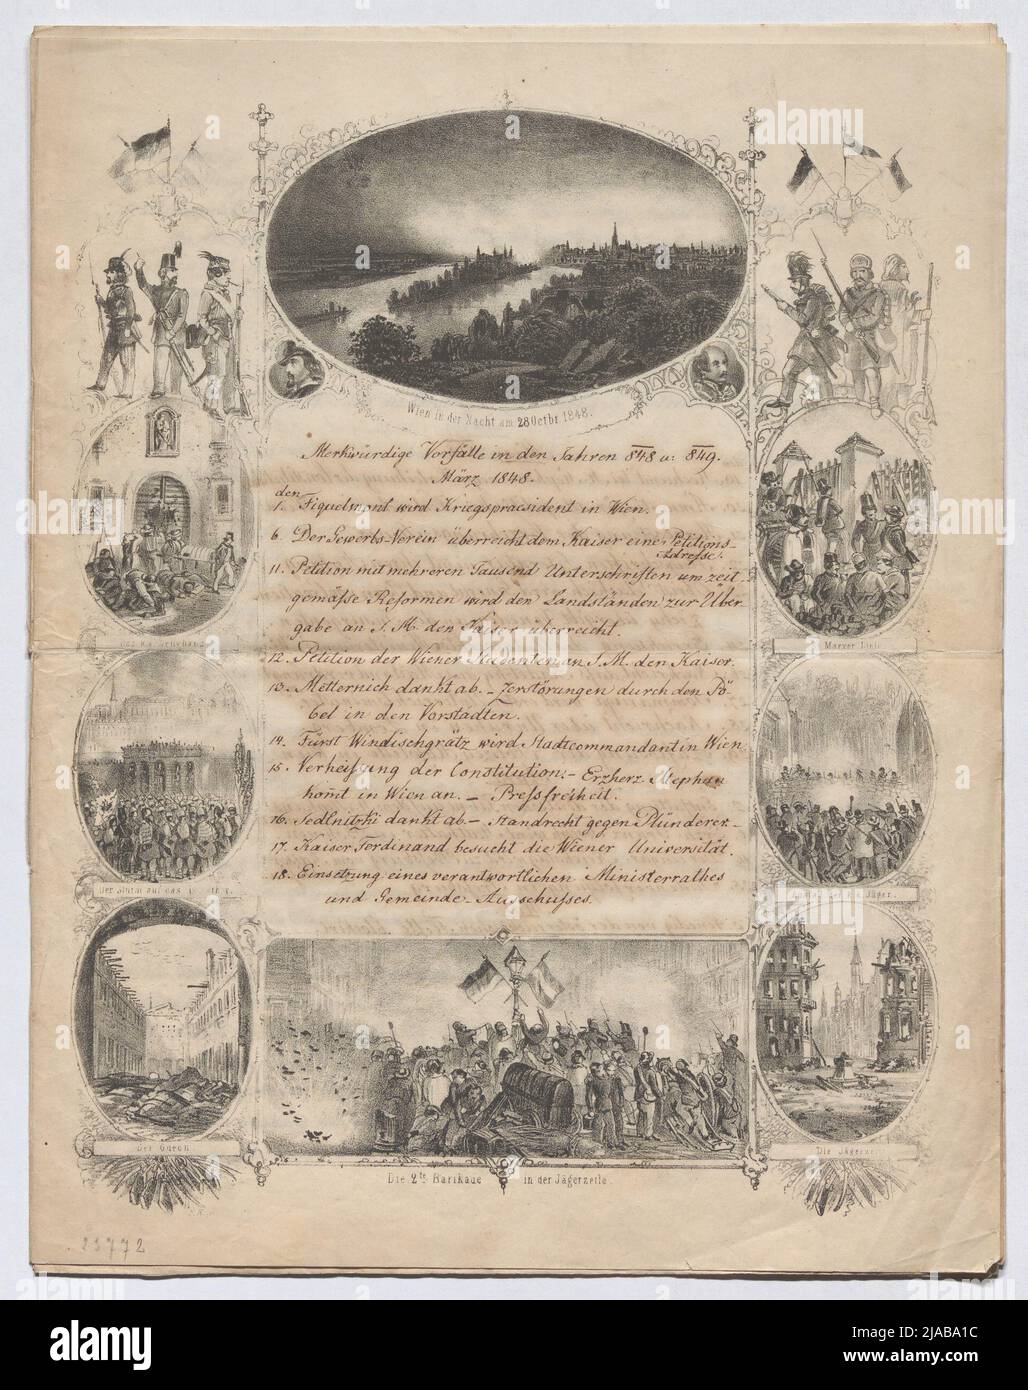 Wien in der Nacht am 28 Octbr 1848.
Merkwürdige Vorfälle in den Jahren 848 u: 849.
März 1848.
den
1. Fiquelmont wird Kriegspraesident in Wien.
6. Der Gewerbs-Verein überreicht dem Kaiser eine Petitions-
Adresse.
11. Petition mit mehreren Tausend Unterschriften um zeit
gemäße Reformen wird den Landständen zur Über
gabe an S. M. den Kaiser überreicht.
12. Petition der Wiener Studenten an S. M. den Kaiser.
13. Metternich dankt ab. – Zerstörungen durch den Pö-
bel in den Vorstädten.
14. Fürst Windischgrätz wird Stadtcommandant in Wien
15. Verheißung der Constitution. – Erzherz. Stephan
kom̄t in Wien an. – Preßfreiheit.
16. Sedlnitzki dankt ab. – Standrecht gegen Plünderer. –
17. Kaiser Ferdinand besucht die Wiener Universität.
18. Einsetzung eines verantwortlichen Ministerrathes
und Gemeinde-Ausschußes.
Marxer Linie
Der Sturm auf das
Jäger.
Der Odeon
Die Jägerzeile
Die 2te Barikade in der Jägerzeile.
23772
alamy
Image ID: 2JABA1C
www.alamy.com